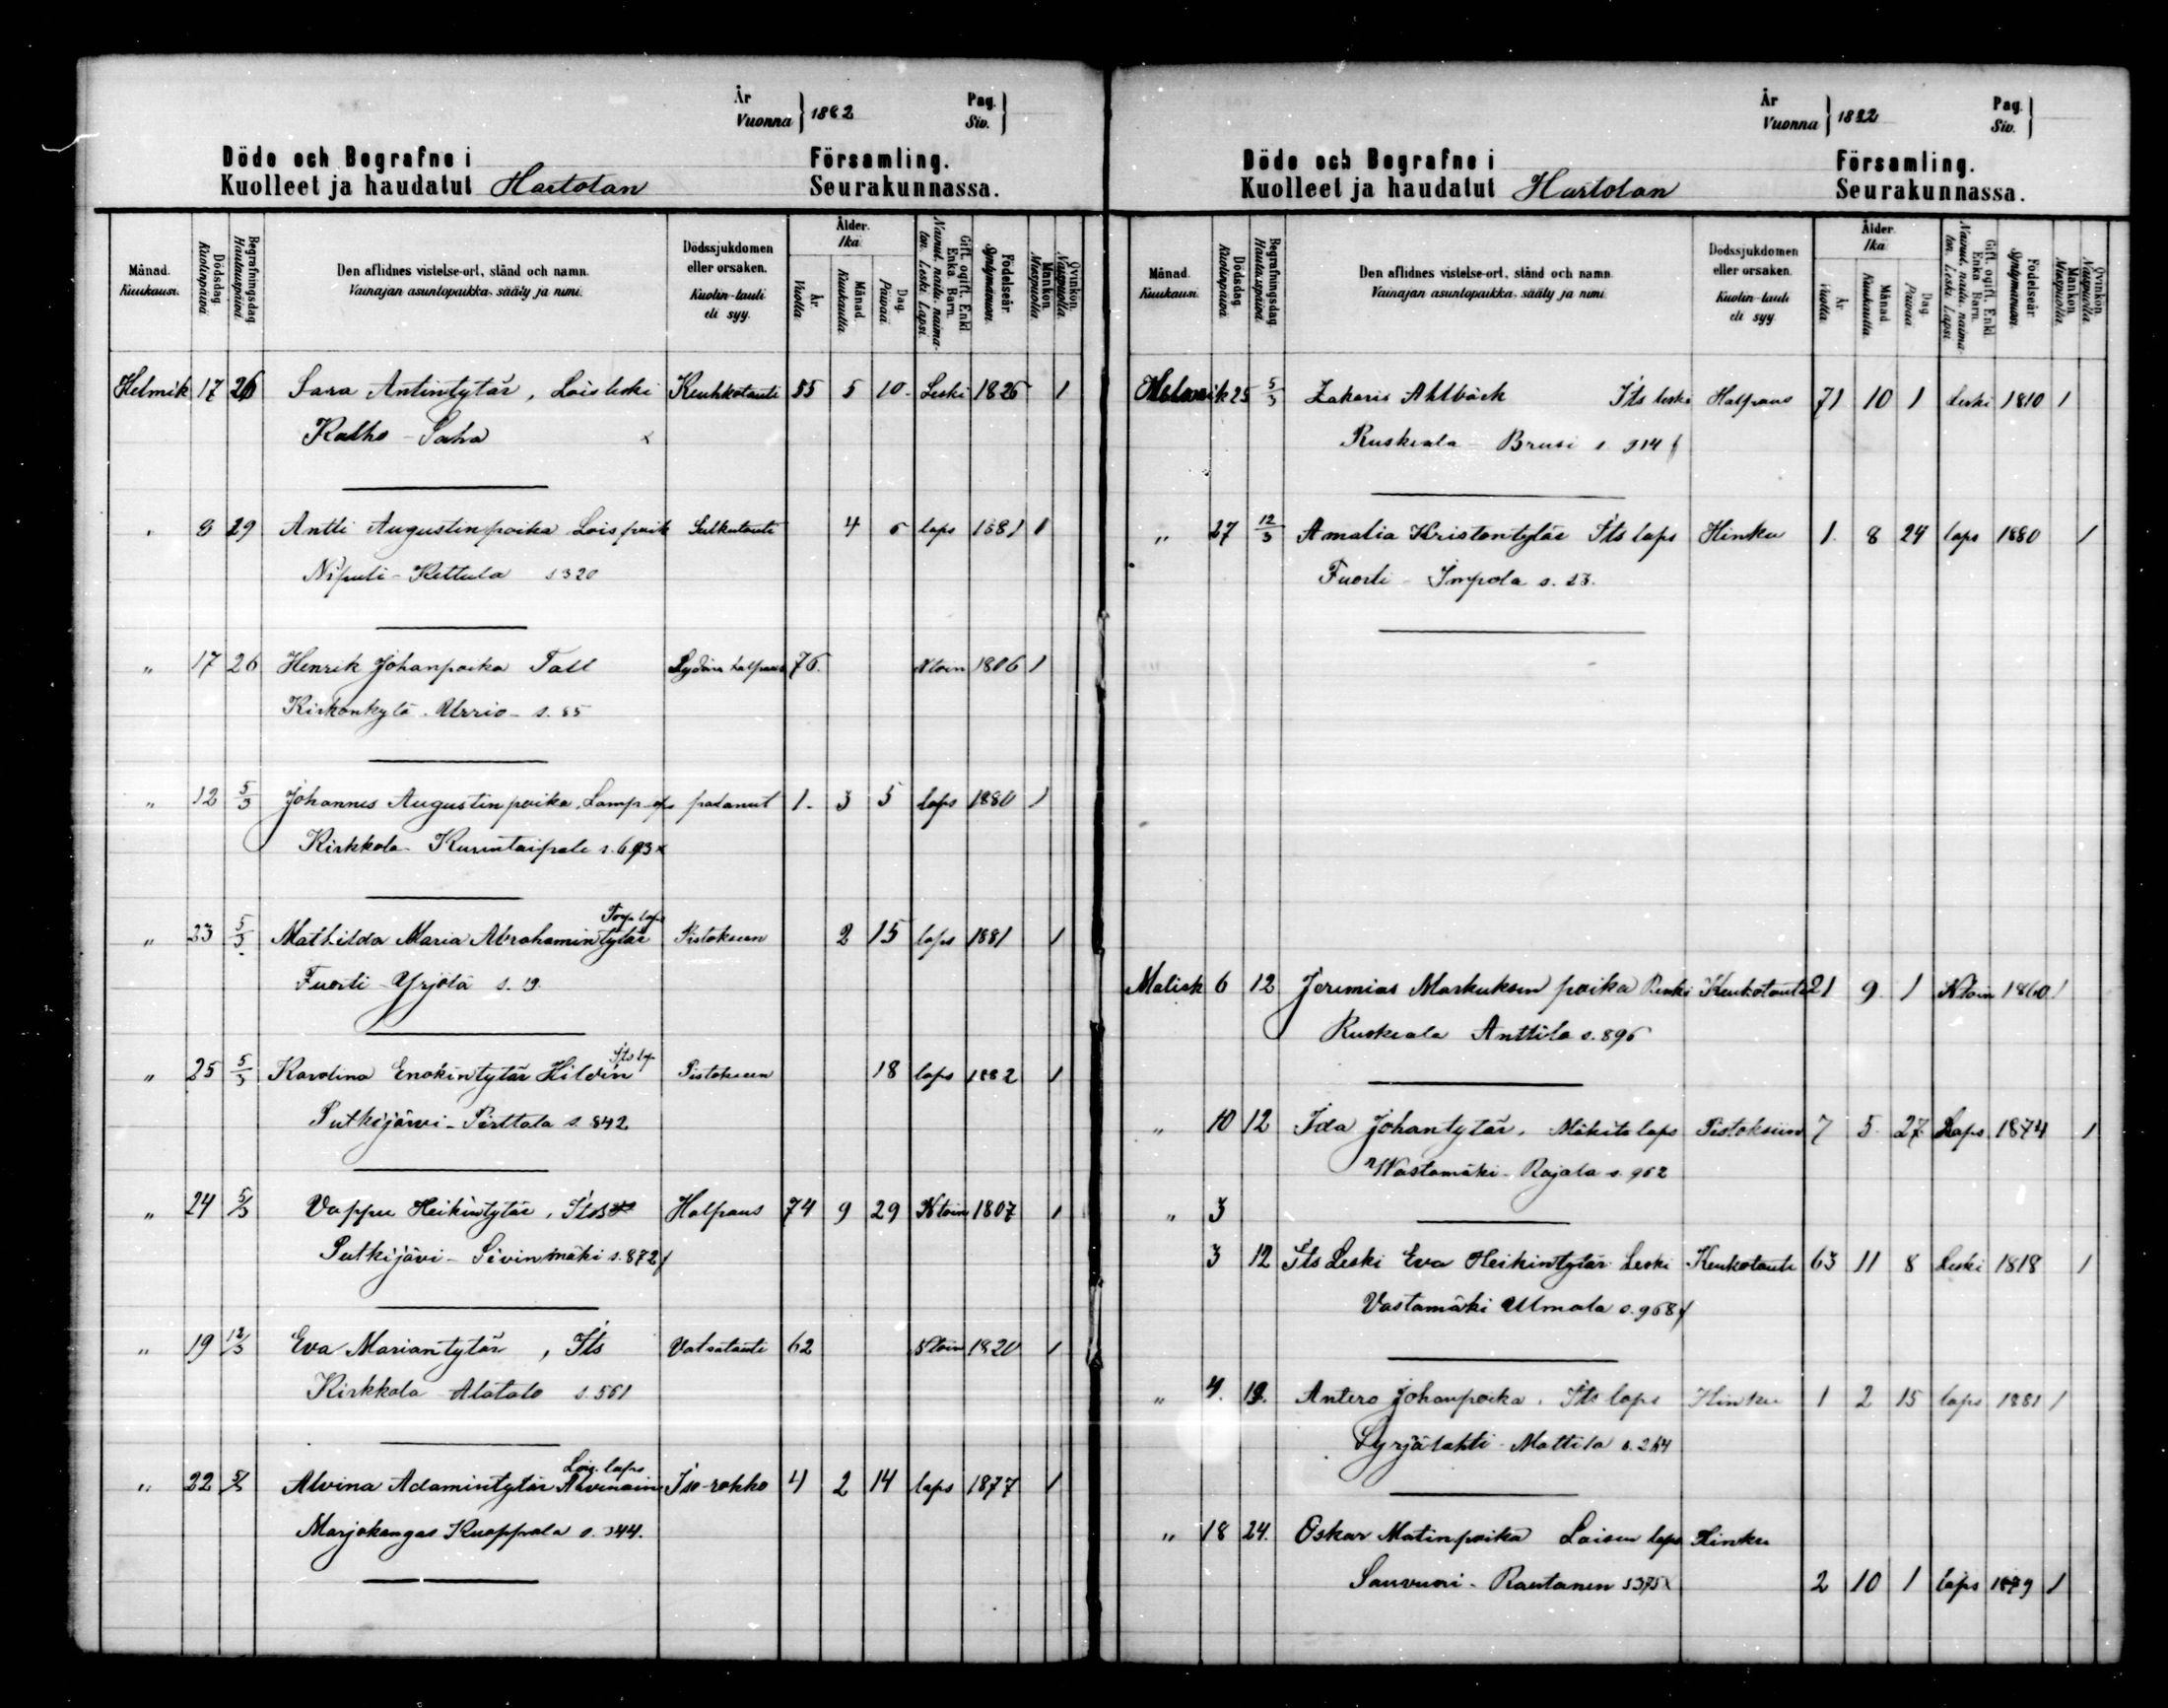 År
Vuonna } 1882 Pag.
Siv. }
Döde och Begrafne i Församling.
Kuolleet ja haudatut Hartolan Seurakunnassa.
Månad. Kuukausi. Dödsdag. Kuolinpäivä. Begrafningsdag. Hautauspäivä. Den aflidnes vistelse-ort, stånd och namn. Vainajan asuntopaikka, sääty ja nimi. Dödssjukdomen eller orsaken. Kuolin-tauti eli syy. Ålder. Ikä. År. Vuotta. Månad. Kuukautta. Dag. Päivää. Gift, ogift, Enkl. Enka. Barn. Nainut, naitu, naimaton. Leski. Lapsi. Födelseår. Syntymävuosi. Mankön. Miespuolia. Qvinkön. Naispuolia.
Helmik 17 26 Sara Antintytär, Loisleski Keuhkotauti 55 5 10 Leski 1826 1
Kalho - Saha x
" 8 29 Antti Augustinpoika Lois poik 4 6 laps 1881 1
Niputi - Kettula s 320
" 17 26 Henrik Johanpoika Tall Sydän halpaus 76. Ntoin 1806 1
Kirkonkylä. Urrio - s. 85
" 12 5/3 Johannes Augustinpoika, Lamp 1. 3 5 laps 1880 1
Kirkkola - Kurintaipale s. 693 x
Torp laps
" 23 5/3 Mathilda Maria Abrahamintytär Pistoksen 2 15 laps 1881 1
Fuorti - Yrjölä s. 19
Its lap
" 25 5/3 Karolina Enokintytär Hildèn Pistoksen 18 laps 1882 1
Putkijärvi - Pirttala s. 842
" 24 5/3 Vappu Heikintytär, Its Halpaus 74 9 29 Ntoin 1807 1
Putkijävi - Sivinmäki s. 872
" 19 12/3 Eva Mariantytär, Its Vatsatauti 62 Ntoin 1820 1
Kirkkola - Alatalo s. 561
Lois. laps
" 22 5/3 Alvina Adamintytär Iso-rokko 4 2 14 laps 1877 1
Marjokangas Kuoppala s. 344.
År
Vuonna } 1882 Pag.
Siv. }
Döde och Begrafne i Församling.
Kuolleet ja haudatut Hartolan Seurakunnassa.
Månad. Kuukausi. Dödsdag. Kuolinpäivä. Begrafningsdag. Hautauspäivä. Den aflidnes vistelse-ort, stånd och namn. Vainajan asuntopaikka, sääty ja nimi. Dödssjukdomen eller orsaken. Kuolin-tauti eli syy. Ålder. Ikä. År. Vuotta. Månad. Kuukautta. Dag. Päivää. Gift, ogift, Enkl. Enka. Barn. Nainut, naitu, naimaton. Leski. Lapsi. Födelseår. Syntymävuosi. Mankön. Miespuolia. Qvinkön. Naispuolia.
Helmik 25 5/3 Zakaris Ahlbäck Its leski Halpaus 71 10 1 Leski 1810 1
Ruskeala - Brusi s 914
" 27 12/3 Amalia Kristontytär Its laps Hinku 1. 8 24 laps 1880 1
Fuorti - Impola s. 23.
Malisk 6 12 Jeremias Markuksen poika Renki Keukotauti 21 9 1 Ntoin 1860 1
Ruskeala Anttila s. 896
" 10 12 Ida Johantytär, Mäkita laps Pistoksiin 7 5 27 Laps 1874 1
Wastamäki - Rajala s. 962
" 3
3 12 Its Leski Eva Heikintytär Leski Keukotauti 63 11 8 Leski 1818 1
Vastamäki Ulmala s. 968
" 4. 19. Antero Johanpoika. Its laps Hinku 1 2 15 laps 1881 1
Syrjälahti - Mattila s. 264
" 18 24. Oskar Matinpoika Loisen laps Hinku
Sauvuori - Rautanen s 375 x 2 10 1 laps 1879 1